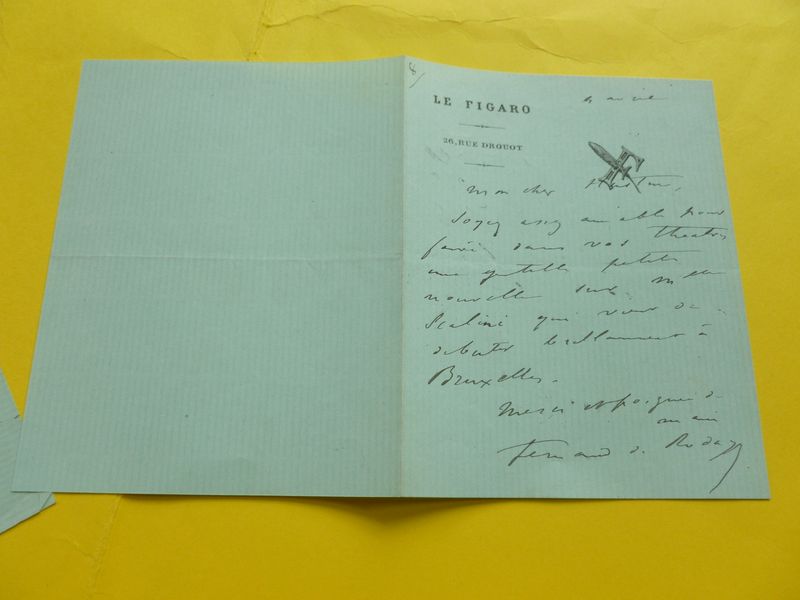 8
LE FIGARO
26, RUE DROUOT
avril
F
Mon cher
Soyez assez aimable pour
faire dans vos theatres
une gentille petite
nouvelle sur Mlle
Scalini qui vient de
debuter brillamment à
Bruxelles.
Merci et poignée de
main
Fernand de Rodays